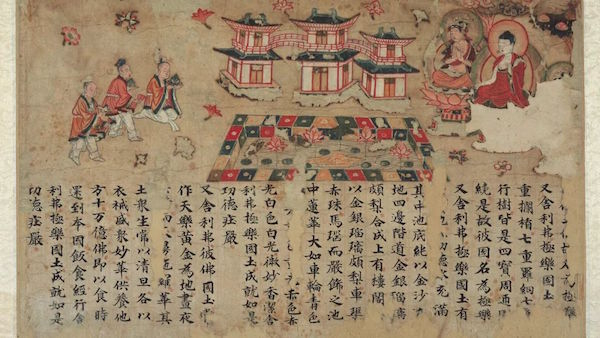 極樂
又舍利弗極樂國土
重欄楯七重羅網七
行樹皆是四寶周迊
繞是故彼國名為極樂
又舍利弗極樂國土有
功德水充滿
其中池底純以金沙
地四邊階道金銀瑠璃
頗梨合成上有樓閣
以金銀瑠璃頗梨車璩
赤珠馬瑙而嚴飾之池
中蓮華大如車輪青色
赤色赤
光白色白光微妙香潔舍
利弗極樂國土成就如是
功德莊嚴
又舍利弗彼佛國土
作天樂黃金為地晝夜
而雨 華其
土衆生常以清旦各以
衣裓盛衆妙華供養他
方十万億佛即以食時
還到本國飯食經行舍
利弗極樂國土成就如是
功德莊嚴